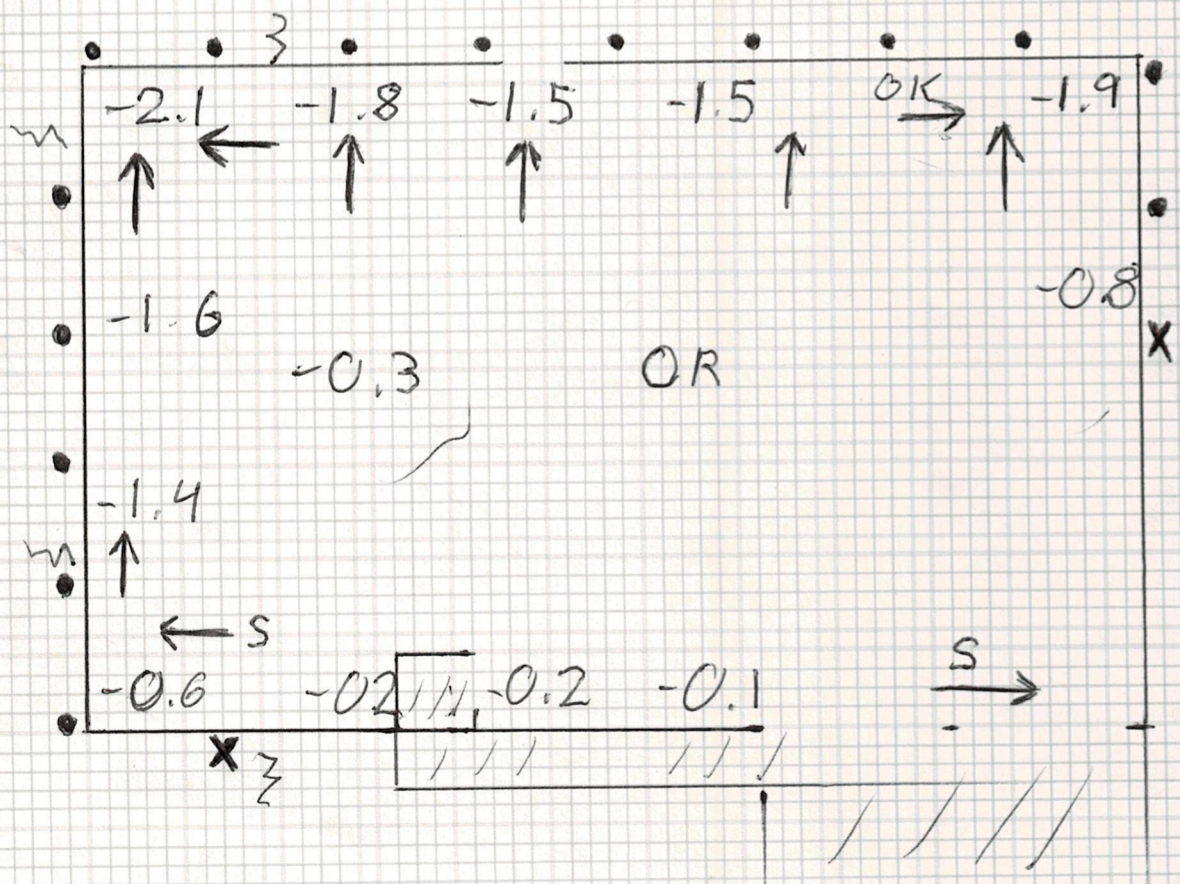 -2.1 -1.8 -1.5 -1.5 OK -1.9
-0.8
-1.6
-0.3 OR
-1.4
S
S
-0.6 -02 -0.2 -0.1
X
X